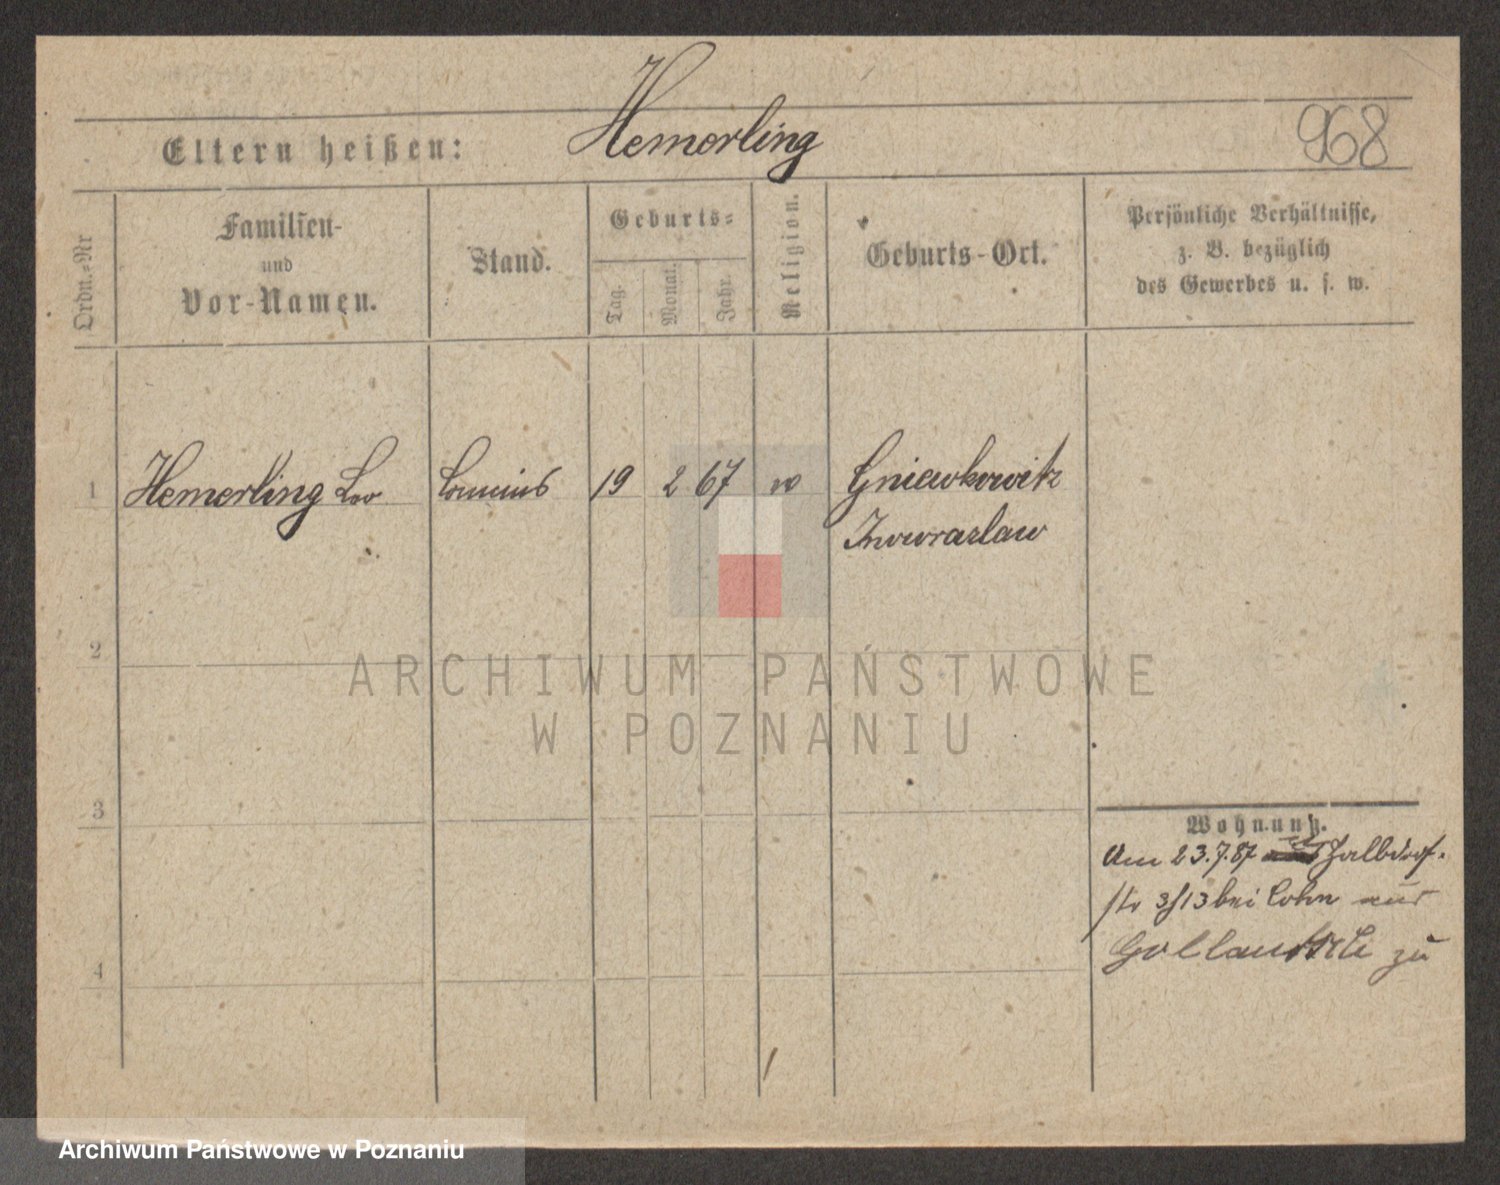 Eltern heißen: Hemerling 968
Ordn.-Nr
Familien-
und
Vor-Namen.
Stand.
Geburts-
Tag.
Monat.
Jahr.
Religion.
Geburts-Ort.
Persönliche Verhältnisse,
z. B. bezüglich
des Gewerbes u. s. w.
1 Hemerling Leo Commis 19 2 67 Gniewkowitz
Inowrazlaw
2
3
4
Wohnung.
Am 23.7.87 Halbdorf-
str 3/13 bei Cohn aus
Gollantsch zu
ARCHIWUM PAŃSTWOWE
W POZNANIU
Archiwum Państwowe w Poznaniu